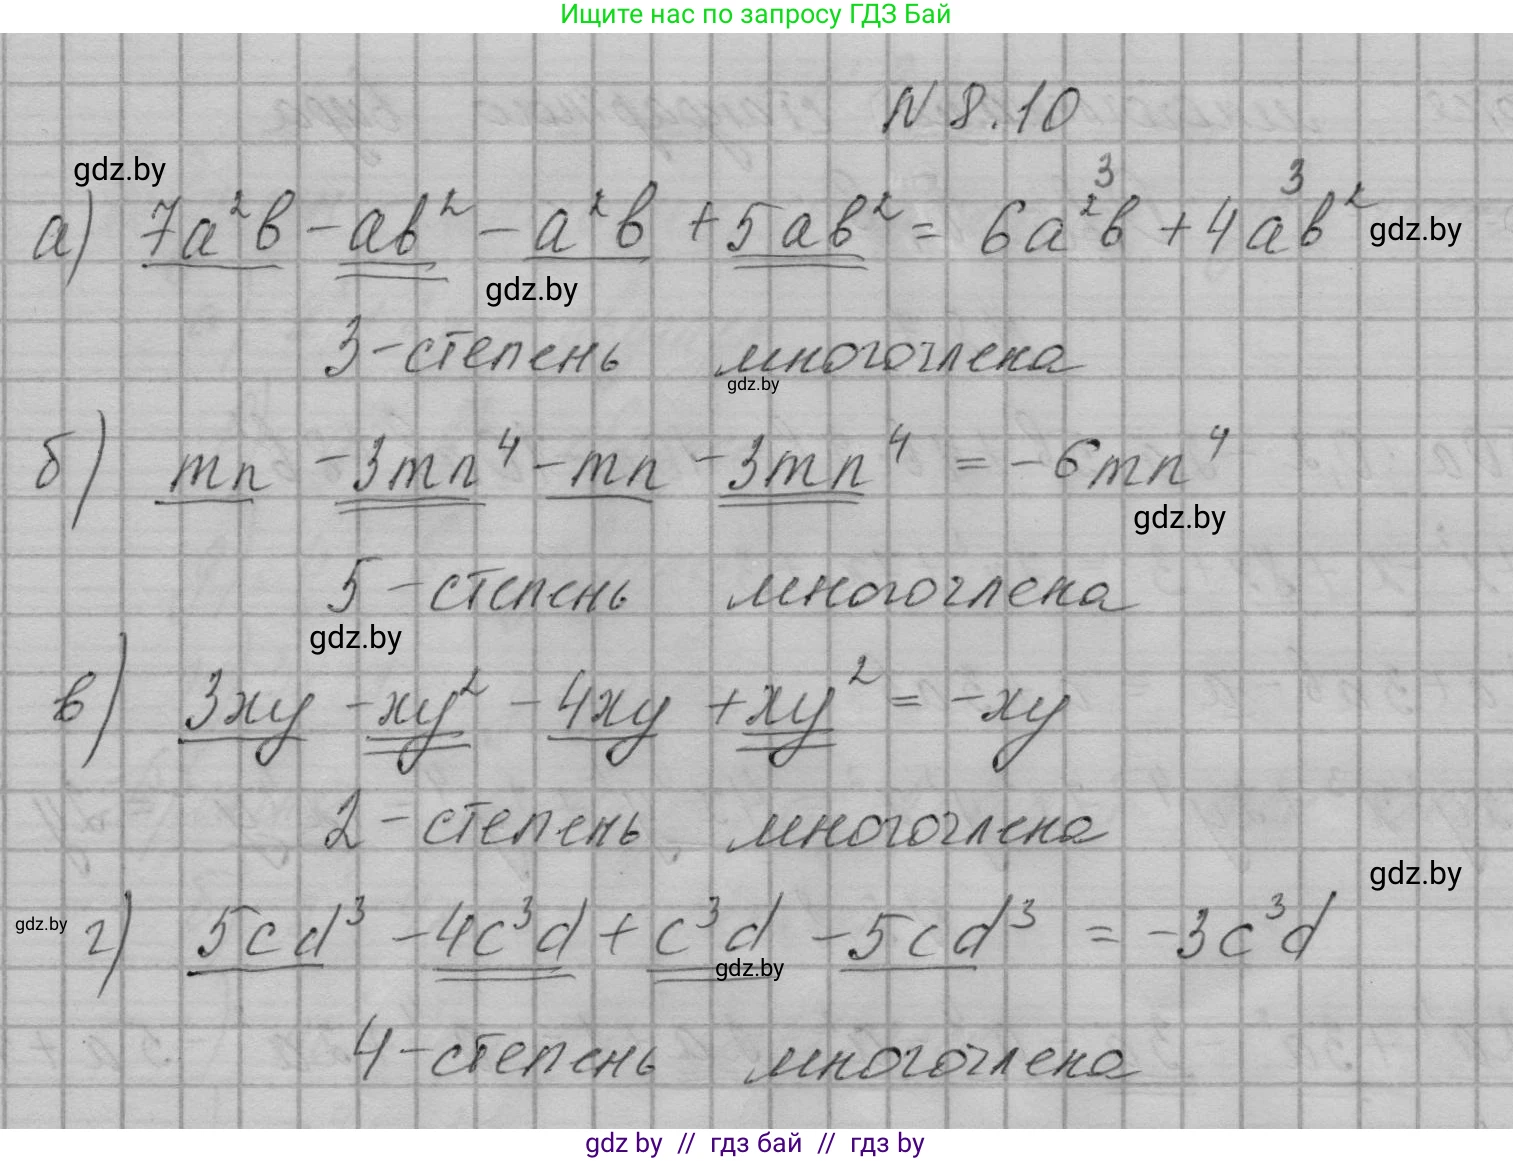 Ищите нас по запросу ГДЗ Бай
N 8.10
gdz.by
3 3
а) 7a²b - ab² - a²b + 5ab² = 6a²b + 4ab²
gdz.by
gdz.by
3 - степень многочлена
gdz.by
б) mn - 3mn⁴ - mn - 3mn⁴ = -6mn⁴
gdz.by
5 - степень многочлена
gdz.by
в) 3xy - xy² - 4xy + xy² = -xy
2 - степень многочлена
gdz.by
gdz.by
г) 5cd³ - 4c³d + c³d - 5cd³ = -3c³d
gdz.by
4 - степень многочлена
gdz by // гдз бай // гдз by